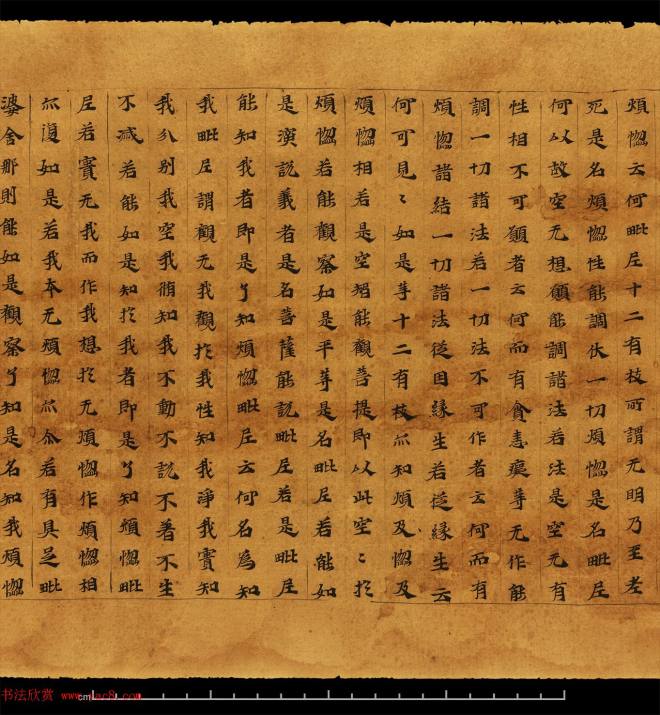 煩惱云何毗尼十二有枝所謂无明乃至老
死是名煩惱性能調伏一切煩惱是名毗尼
何以故空无想願能調諸法若法是空无有
性相不可願者云何而有貪恚癡等无作能
調一切諸法若一切法不可作者云何而有
煩惱諸結一切諸法從因緣生若從緣生云
何可見〻如是等十二有枝亦知煩及惱及
煩惱相若是空智能觀菩提即以此空〻於
煩惱若能觀察如是平等是名毗尼若能如
是演說義者是名菩薩能說毗尼若是毗尼
能知我者即是了知煩惱毗尼云何名為知
我毗尼謂觀无我觀於我性知我淨我實知
我分別我空我須知我不動不說不著不生
不滅若能如是知於我者即是了知煩惱毗
尼若實无我而作我想於无煩惱作煩惱相
亦復如是若我本无煩惱亦尒若有具足毗
婆舍那則能如是觀察了知是名知我煩惱
书法欣赏 www.yac8.com
cm